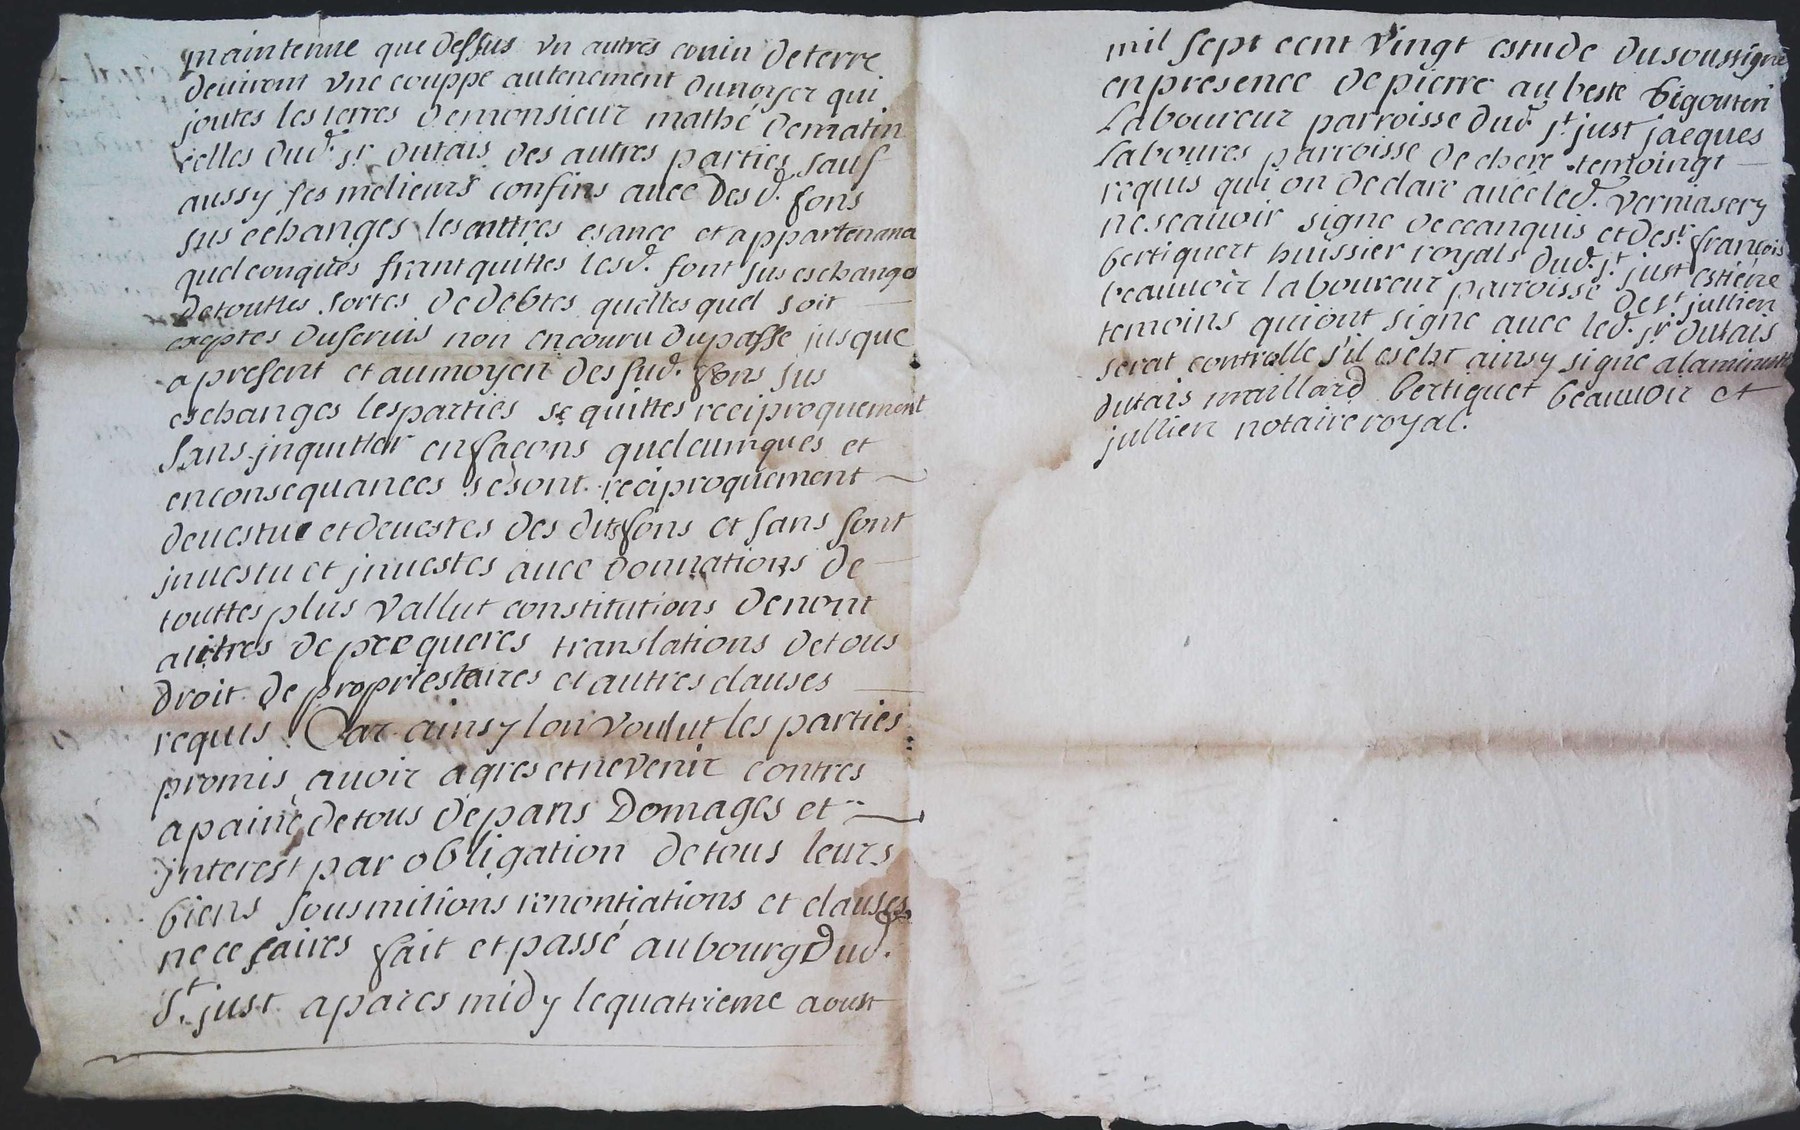 maintenue que dessus vn autres couin deterre
deuiront vne couppe autenement dunoyer qui
joutes les terres demonsieur mathé dematin
celles dud. sr. dutais des autres parties sauf
aussy ses melieurs confins auec des d. fons
sus echanges lesenttres esance et appartenance
quelconques frant quittes lesd. font sus eschange
detouttes sortes dedebtes quelles quel soit
exeptes duseruis non encouru dupasse jusque
apresent et aumoyen des sud. fons sus
eschanges lesparties se quittes reciproquement
sans jnquitter enfaçons quelcumques et
enconsequances se sont reciproquement
deuestue et deuestes des dits fons et sans sont
jnuestu et jnuestes auec donnations de
touttes plus vallut constitutions denont
autres de precqueres translations detous
droit de propriestaires et autres clauses
requis Car ainsy lon voulut les parties
promis auoir agres et nevenir contres
apaine detous depans Domages et
jnterest par obligation detous leurs
biens sousmitions renontiations et clauses
necesaires fait et passé aubourg Dud.
St. just apares midy lequatrieme aoust
mil sept cent vingt estude dusoussigné
enpresence depierre aubeste bigouteri
Laboureur parroisse dud. st. just jacques
Laboures parroisse de chere temoingt
requis qui on declare auec led. verniasery
nescauoir signe deceanquis et de sr. françois
bertiquert huissier royals dud. st. just estiene
beauuoir laboureur parroisse de st. jullien
temoins quiont signe auec led. sr. dutais
serat controlle s'il escht ainsy signe alaminutte
dutais maillard bertiquet beauuoir et
jullien notaire royal.